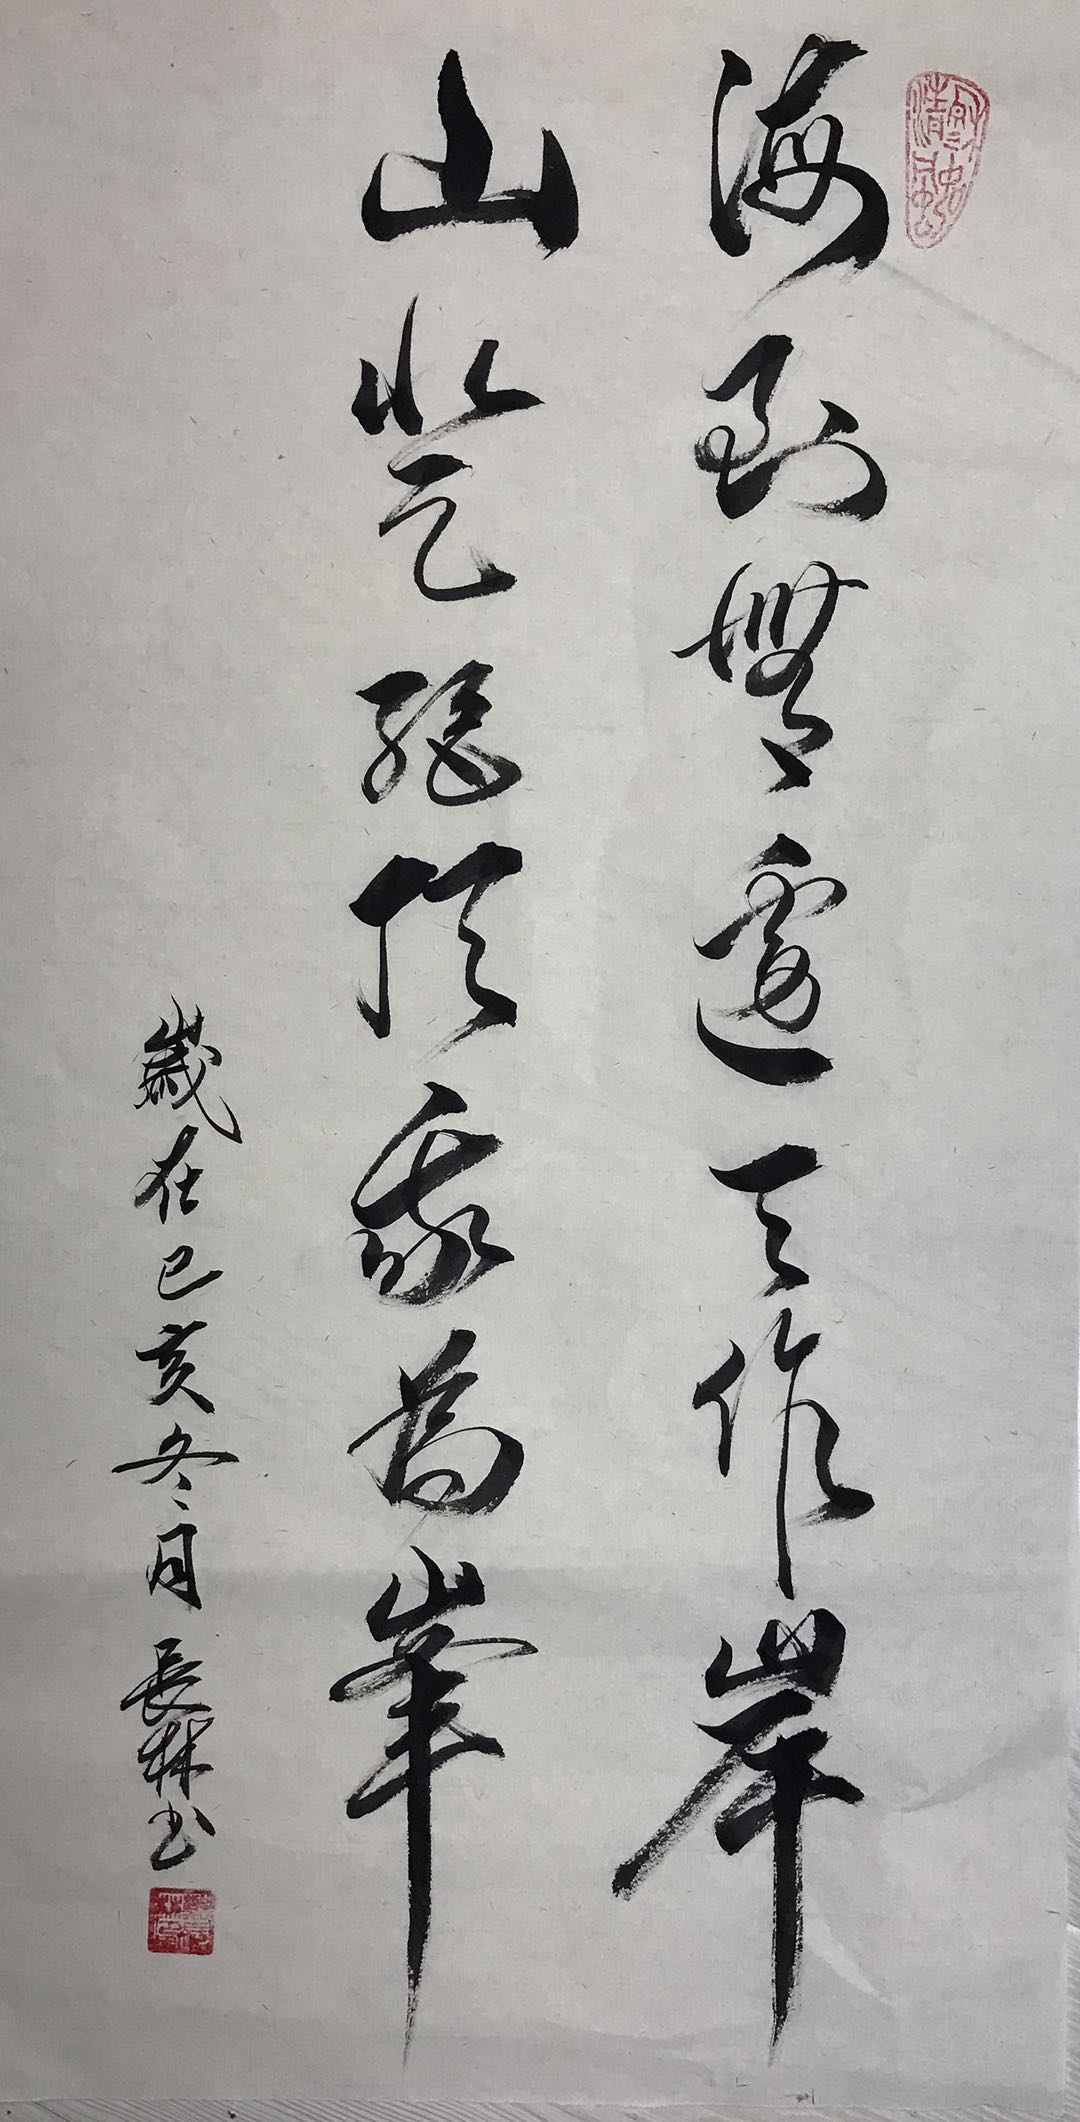 海到無邊天作岸
山登絕頂我為峯
歲在己亥冬月長林書